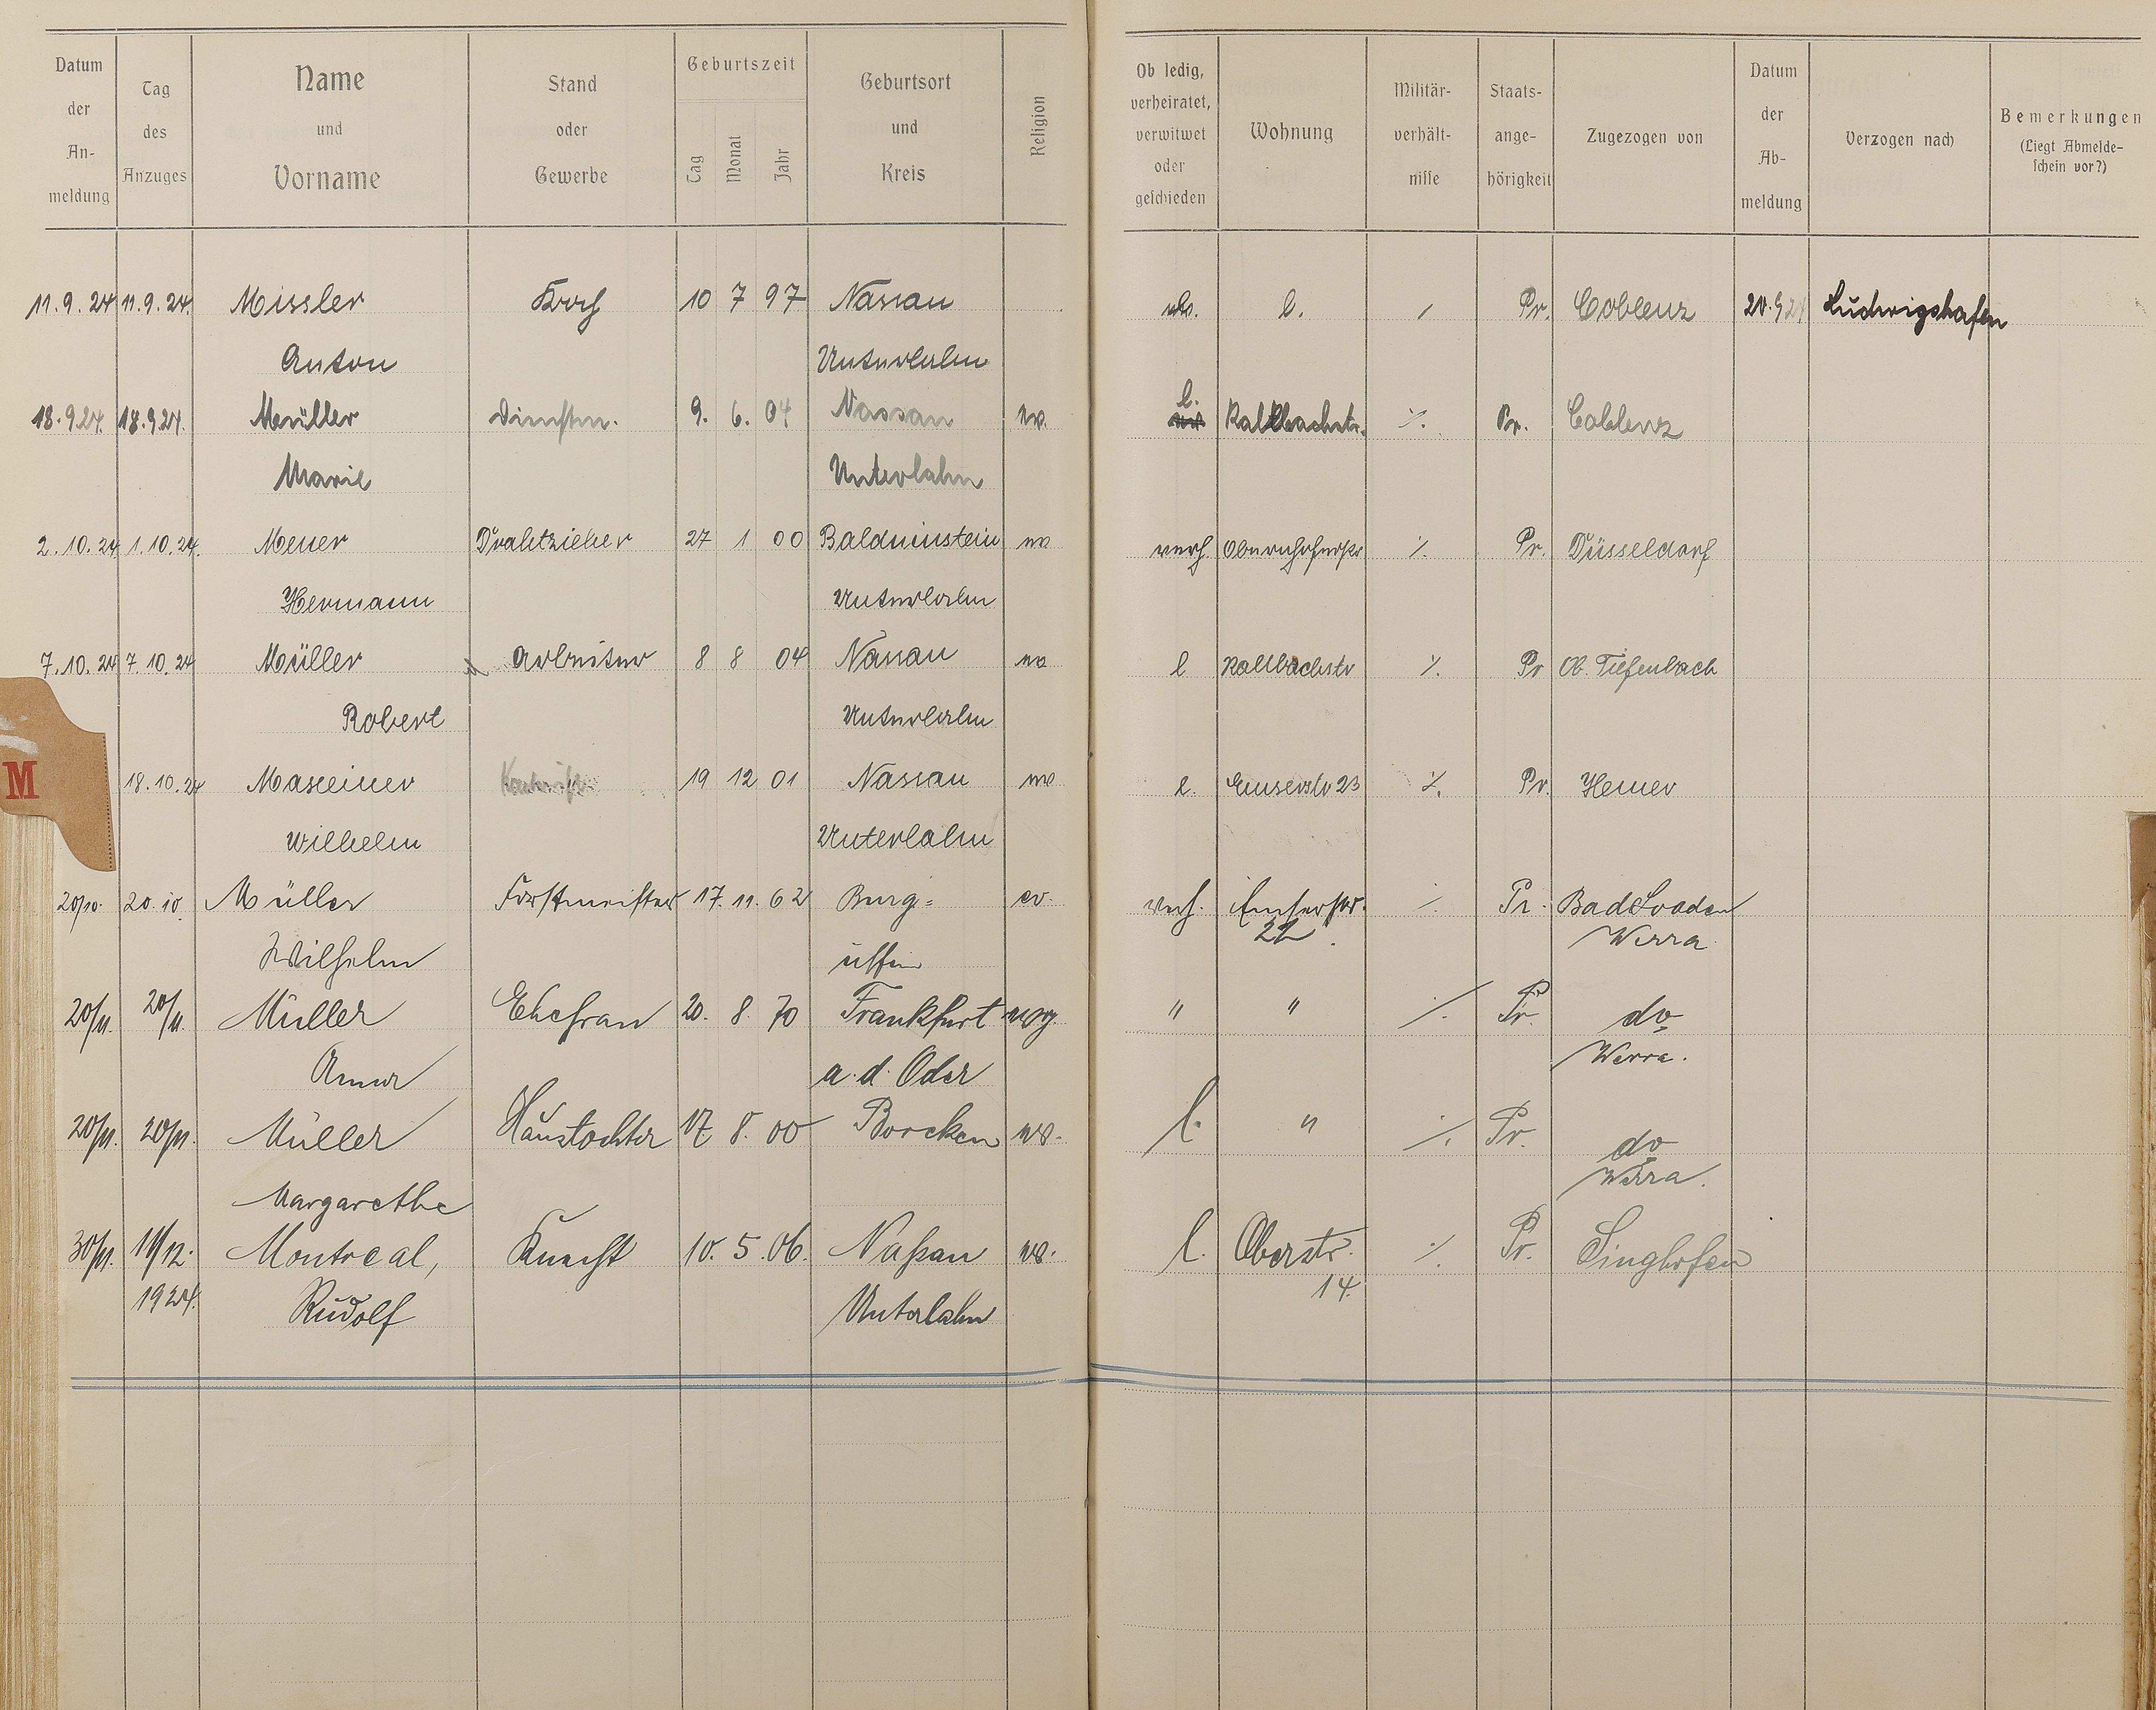 Datum der An- meldung
Tag des Anzuges
Name und Vorname
Stand oder Gewerbe
Geburtszeit
Tag Monat Jahr
Geburtsort und Kreis
Religion
Ob ledig, verheiratet, verwitwet oder geschieden
Wohnung
Militär- verhält- nisse
Staats- ange- hörigkeit
Zugezogen von
Datum der Ab- meldung
Verzogen nach
Bemerkungen (Liegt Abmelde- schein vor?)
11.9.24 11.9.24. Missler Koch 10 7 97 Nassau l. Pr. Coblenz Ludwigshafen
Anton Unterlahn
18.9.24. 18.9.24. Müller Dienstm. 9. 6. 04 Nassau ev. l. Kaltbachstr. ٪. Pr. Coblenz
Marie Unterlahn
2.10.24 1.10.24. Meuer Drahtzieher 27 1 00 Balduinstein ev verh. ٪. Pr. Düsseldorf
Hermann Unterlahn
7.10.24 7.10.24 Müller Arbeiter 8 8 04 Nassau ev l Kaltbachstr ٪. Pr Ob. Tiefenbach
Robert Unterlahn
M
18.10.24 Masseiner 19 12 01 Nassau ev l. Emserstr 23 ٪. Pr. Hemer
Wilhelm Unterlahn
20/10. 20.10. Müller Forstmeister 17. 11. 62 Burg= ev. verh. Emserstr. ٪. Pr. Bad Sooden
22. Werra
Wilhelm uffeln
20/11. 20/11. Müller Ehefrau 20. 8. 70 Frankfurt evg. " " ٪. Pr. do
Werra.
Anna a. d. Oder
20/11. 20/11. Müller Haustochter 17 8. 00 Borcken ev. l. " ٪. Pr. do
Werra.
Margarethe
30/11. Montreal, Knecht 10. 5. 06. Naßau ev. l. Oberstr. ٪. Pr. Singhofen
1924. 14.
Rudolf Unterlahn